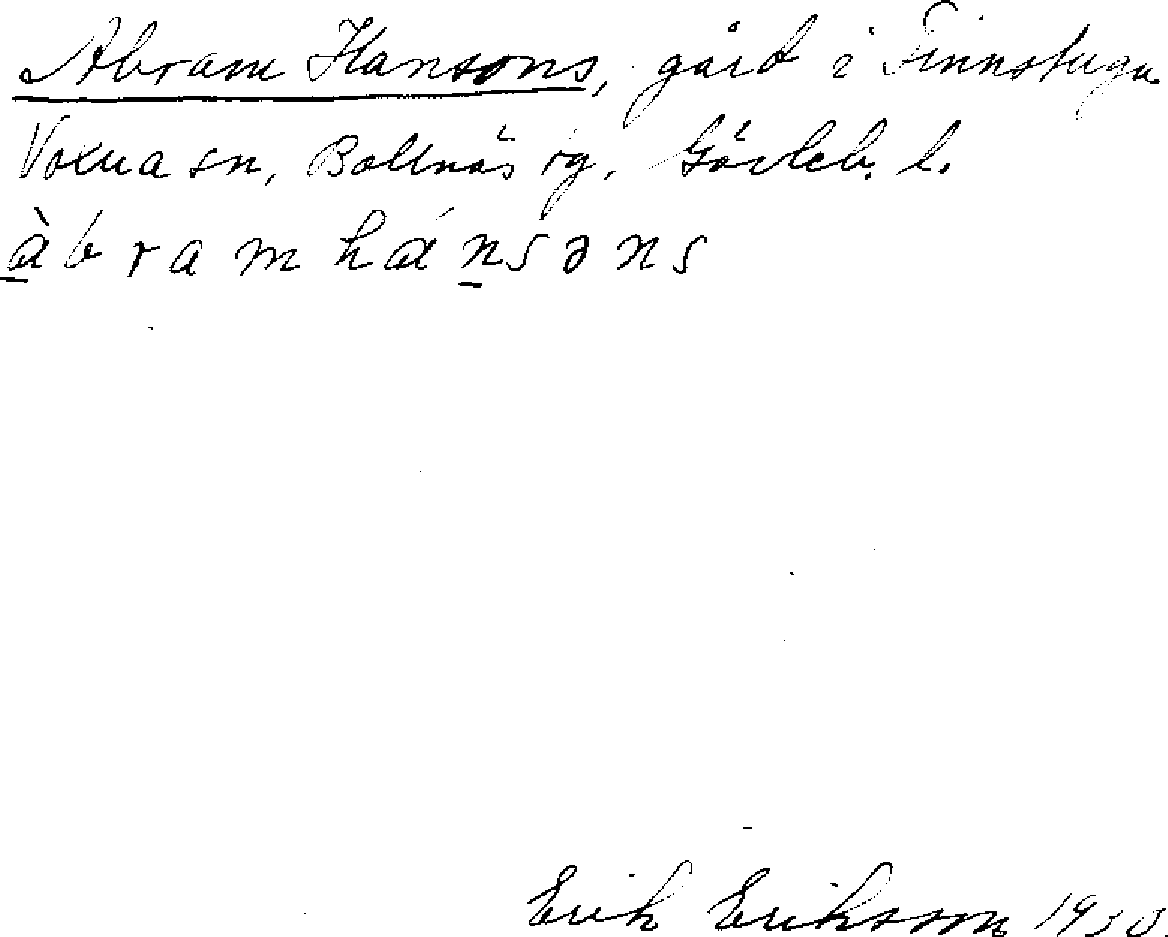 Abram Hansons, gård i Finnstuga
Voxna sn, Bollnäs tg, Gävleb. l.
àbramhánsəns
Erik Eriksson 1930.